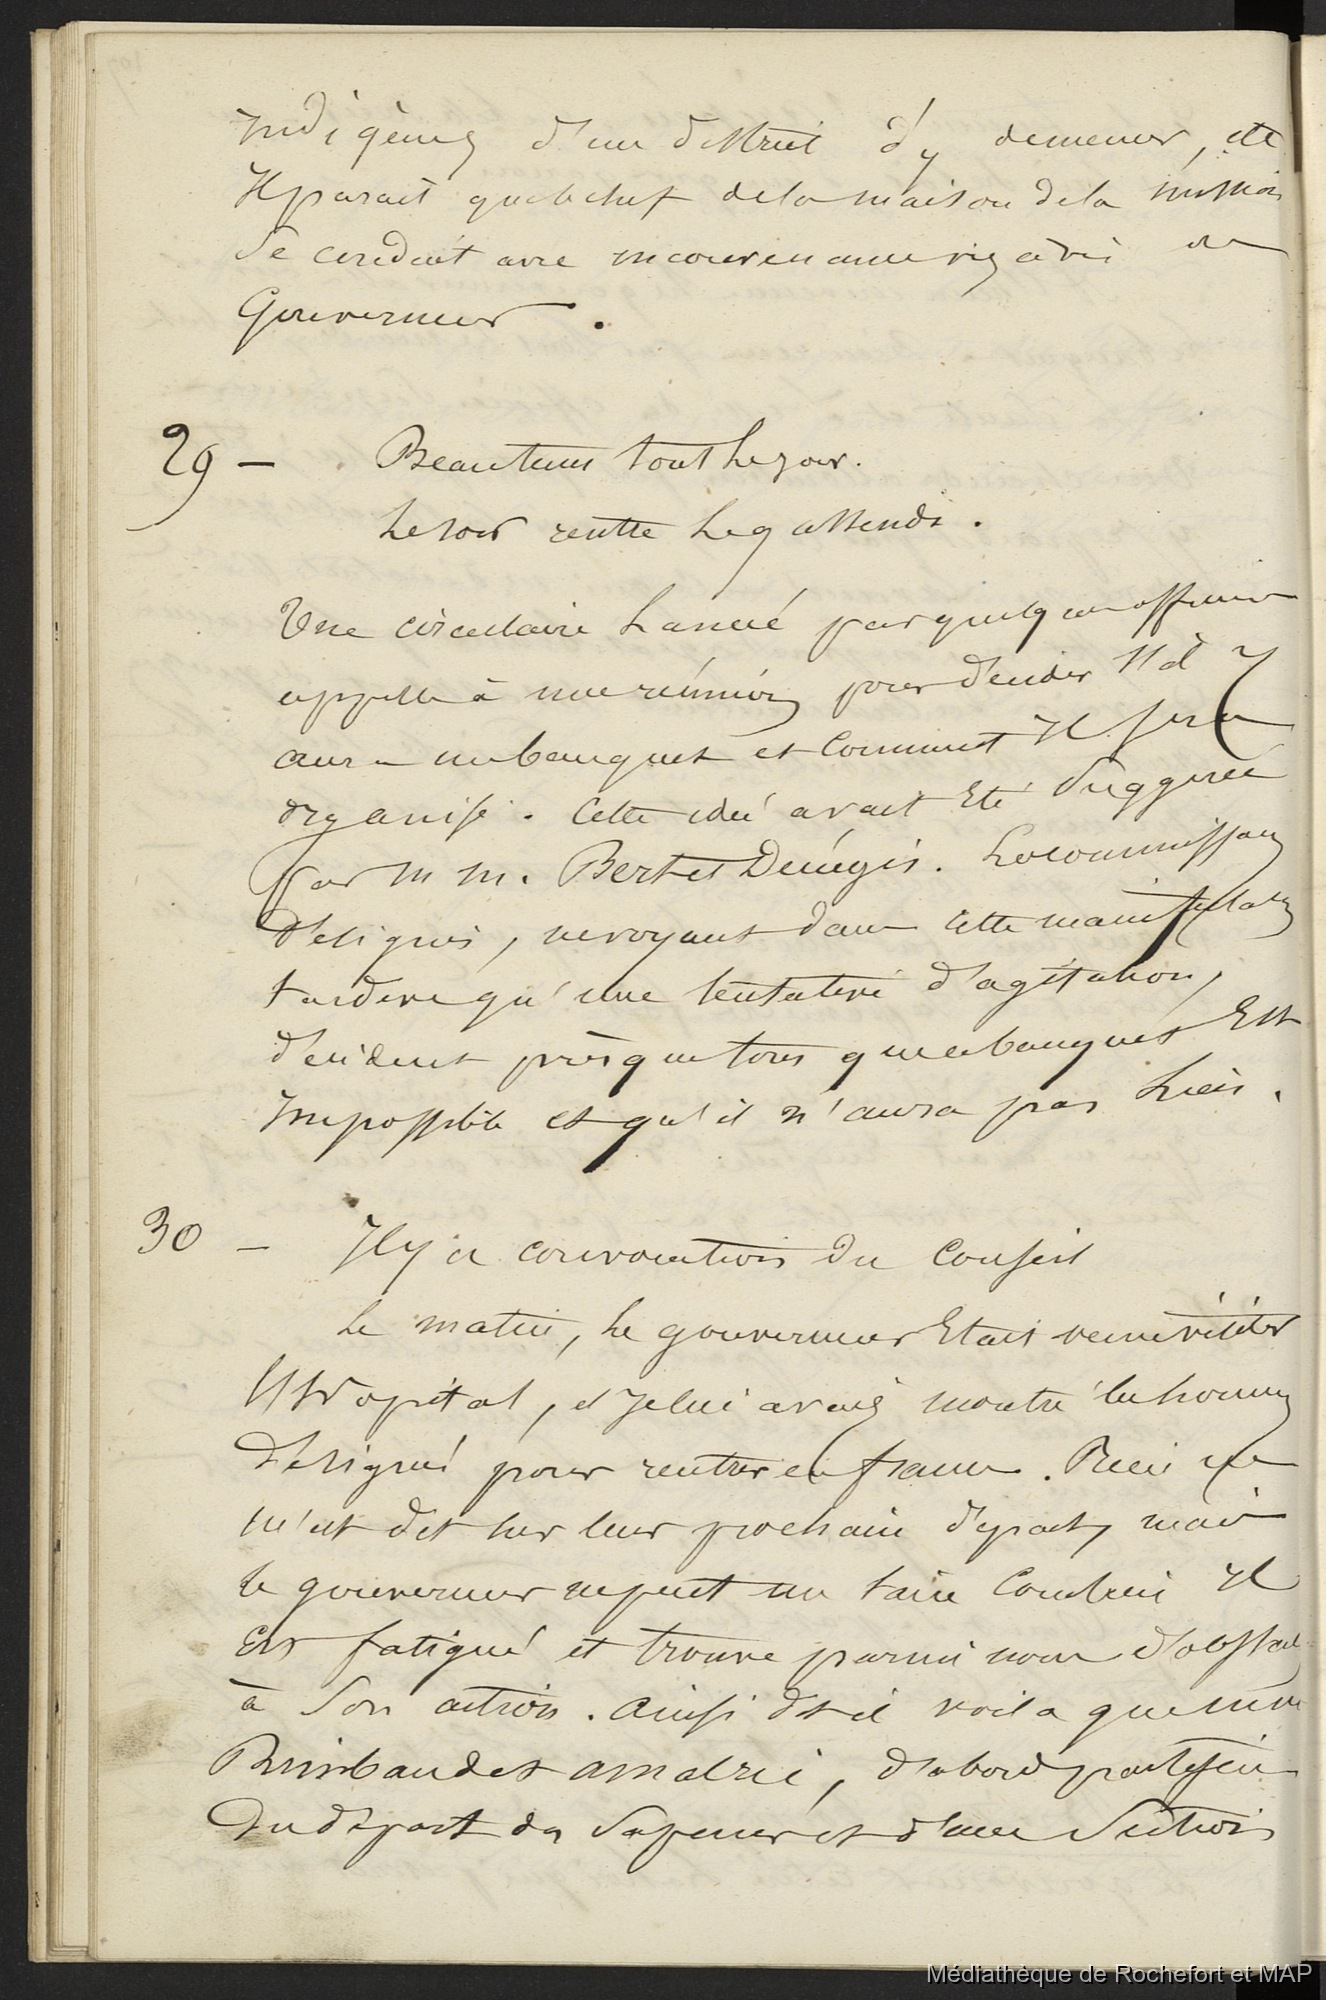 Indigènes d'un district d'y demeurer, etc
Il parait que le chef de la maison de la mission
se conduit avec inconvenance vis à vis du
Gouverneur.
29 – Beau tems tout le jour.
Le soir rentre
Une circulaire lancée par quelques officiers
appelle à une réunion pour décider s'il y
aura un banquet et comment il sera
organisé. Cette idée avait été suggérée
par M M. Bert et Denégis. Les commissaires
désignés, ne voyant dans cette manifestation
tardive qu'une tentative d'agitation,
décident presque tous que ce banquet est
impossible et qu'il n'aura pas lieu.
30 – Il y a convocation du Conseil
Le matin, le gouverneur était venu visiter
l'hopital, et je lui avais montré les hommes
désignés pour rentrer en france. Rien ne
m'est dit sur leur prochain départ, mais
le gouverneur ne peut me taire combien il
est fatigué et trouve parmi nous d'obstacles
à son action. Ainsi dit-il voila que MM
Rimbaud et Amalric, d'abord partisans
du départ des sapeurs et d'une section
Médiathèque de Rochefort et MAP